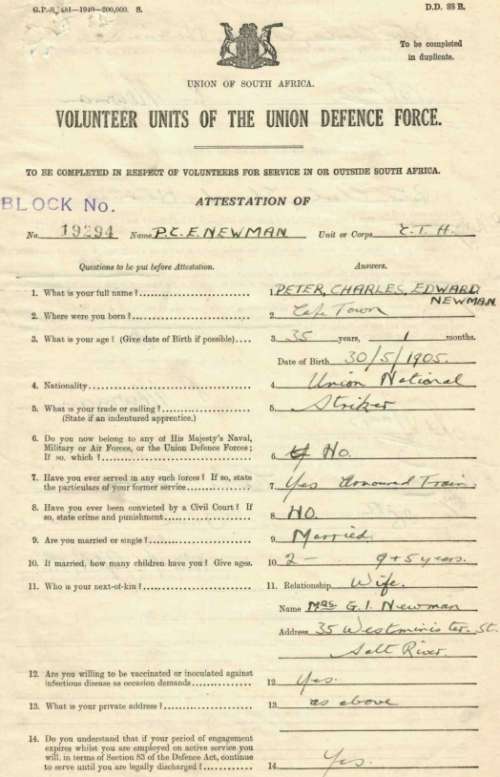 G.P.-S. 481—1940—200,000. S.
D.D. 88 B.
To be completed
in duplicate.
UNION OF SOUTH AFRICA.
VOLUNTEER UNITS OF THE UNION DEFENCE FORCE.
TO BE COMPLETED IN RESPECT OF VOLUNTEERS FOR SERVICE IN OR OUTSIDE SOUTH AFRICA.
BLOCK No.
ATTESTATION OF
No. 19294 Name P.C.E. NEWMAN Unit or Corps C.T.H.
Questions to be put before Attestation. Answers.
1. What is your full name? 1. PETER, CHARLES, EDWARD,
NEWMAN
2. Where were you born? 2. Cape Town
3. What is your age? (Give date of Birth if possible) 3. 35 years, 1 months.
Date of Birth 30/5/1905.
4. Nationality 4. Union National
5. What is your trade or calling? 5. Striker
(State if an indentured apprentice.)
6. Do you now belong to any of His Majesty's Naval,
Military or Air Forces, or the Union Defence Forces;
If so, which? 6. No.
7. Have you ever served in any such forces? If so, state
the particulars of your former service 7. Yes Armoured Train
8. Have you ever been convicted by a Civil Court? If
so, state crime and punishment 8. NO.
9. Are you married or single? 9. Married.
10. If married, how many children have you? Give ages. 10. 2 — 9 + 5 years.
11. Who is your next-of-kin? 11. Relationship Wife.
Name Mrs G. I. Newman
Address 35 Westminister St.
Salt River.
12. Are you willing to be vaccinated or inoculated against
infectious disease as occasion demands 12 Yes.
13. What is your private address? 13. as above
14. Do you understand that if your period of engagement
expires whilst you are employed on active service you
will, in terms of Section 83 of the Defence Act, continue
to serve until you are legally discharged? 14. Yes.